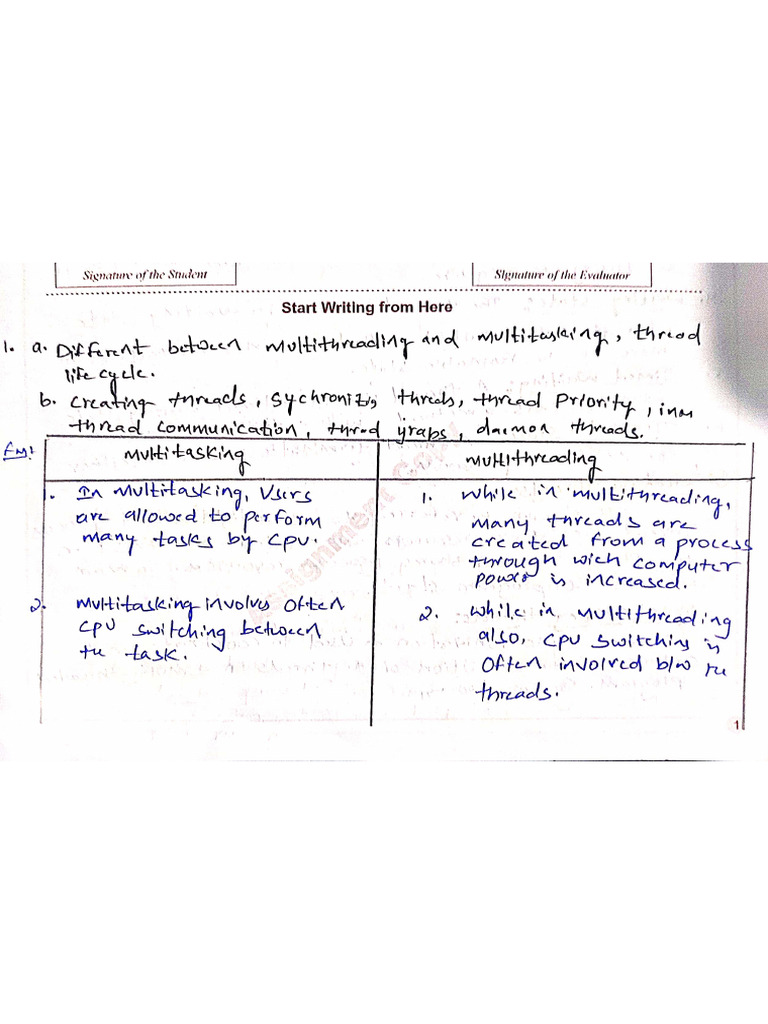 Signature of the Student
Signature of the Evaluator
Start Writing from Here
1. a. Different between multithreading and multitasking, thread
life cycle.
b. Creating threads, Sychronizis threds, thread Priority, inm
thread communication, thred graps, daemon threads.
Multitasking
Multithreading
1. In Multitasking, Users
are allowed to perform
many tasks by CPU.
2. Multitasking involves Often
CPU switching between
the task.
1. While in multithreading,
many threads are
created from a process
through wich computer
power is increased.
2. While in multithreading
also, CPU switching is
Often involved b/w the
threads.
Assignment Copy
1